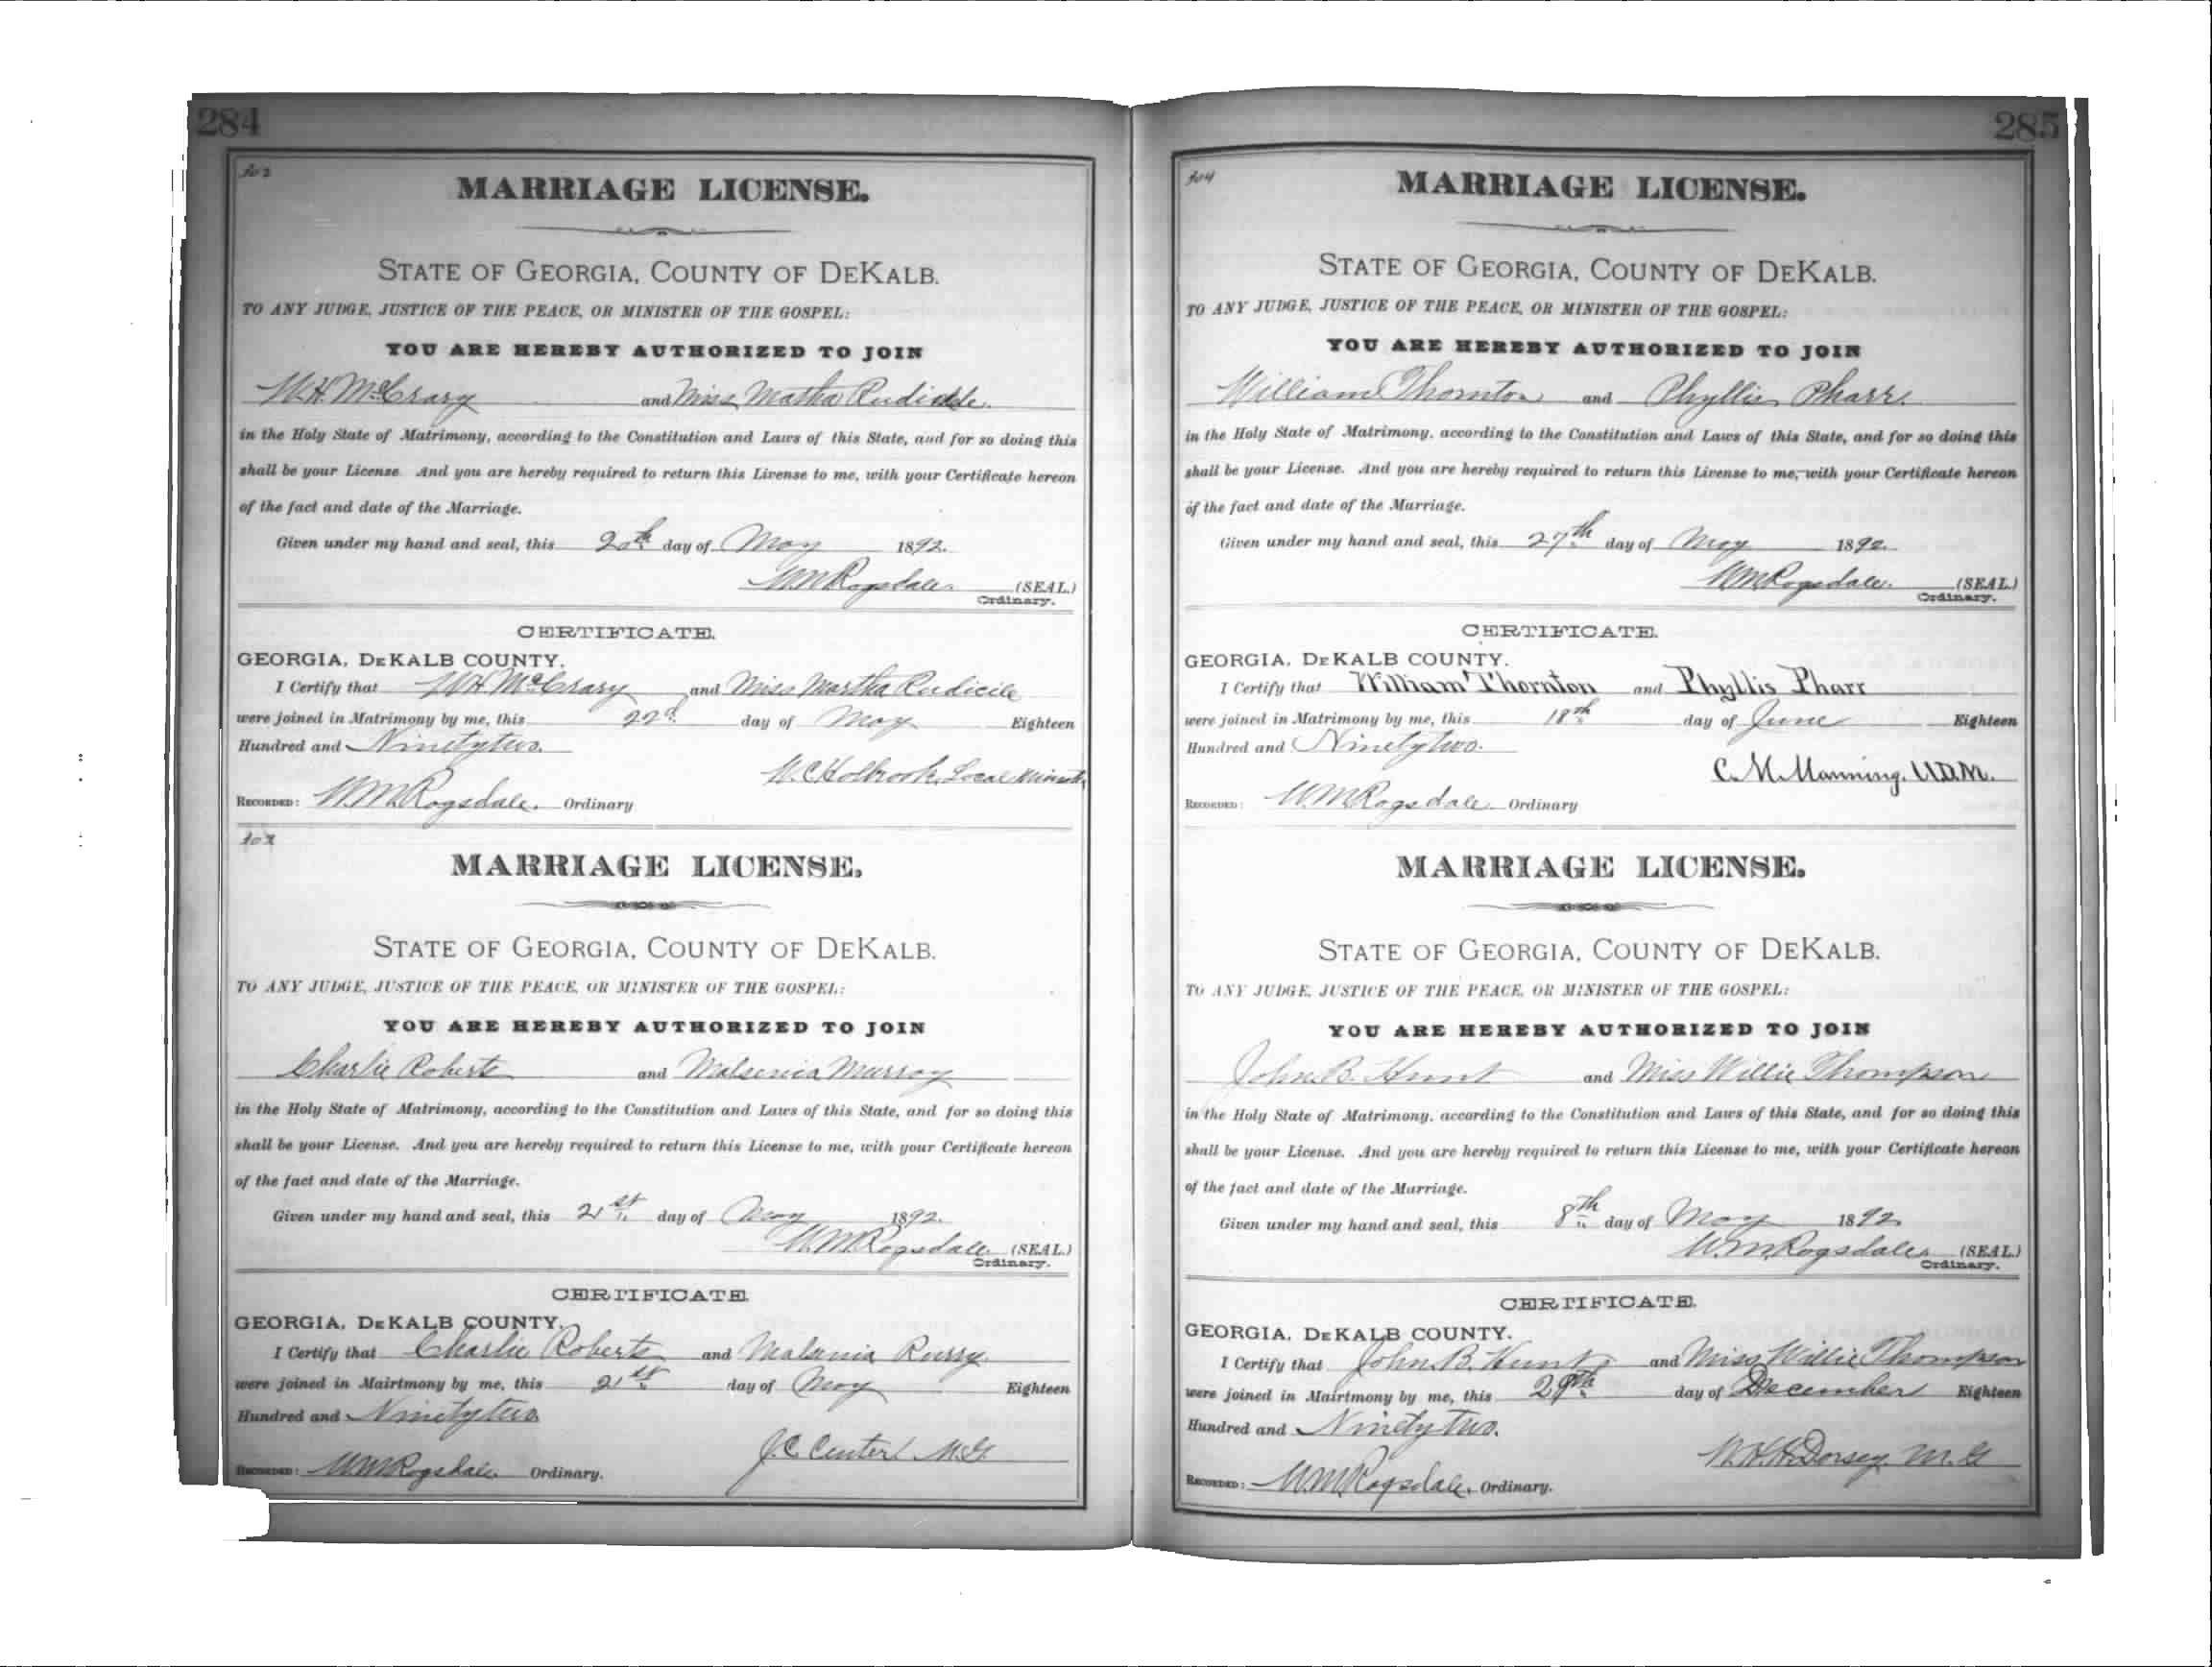 284
302
MARRIAGE LICENSE.
STATE OF GEORGIA, COUNTY OF DEKALB.
TO ANY JUDGE, JUSTICE OF THE PEACE, OR MINISTER OF THE GOSPEL:
YOU ARE HEREBY AUTHORIZED TO JOIN
W.H. McCrary and Miss Matha
in the Holy State of Matrimony, according to the Constitution and Laws of this State, and for so doing this
shall be your License. And you are hereby required to return this License to me, with your Certificate hereon
of the fact and date of the Marriage.
Given under my hand and seal, this 20th day of May 1892.
W.M Ragsdale. (SEAL.)
Ordinary.
CERTIFICATE.
GEORGIA, DEKALB COUNTY.
I Certify that W H McCrary and Miss Martha Rudicile
were joined in Matrimony by me, this 22d day of May Eighteen
Hundred and Ninety two.
W.C Holbrook, Local Minister
RECORDED: W.M. Ragsdale. Ordinary
303
MARRIAGE LICENSE.
STATE OF GEORGIA, COUNTY OF DEKALB.
TO ANY JUDGE, JUSTICE OF THE PEACE, OR MINISTER OF THE GOSPEL:
YOU ARE HEREBY AUTHORIZED TO JOIN
Charlie Roberts and Murray
in the Holy State of Matrimony, according to the Constitution and Laws of this State, and for so doing this
shall be your License. And you are hereby required to return this License to me, with your Certificate hereon
of the fact and date of the Marriage.
Given under my hand and seal, this 21st day of May 1892.
W.M. Ragsdale. (SEAL.)
Ordinary.
CERTIFICATE.
GEORGIA, DEKALB COUNTY.
I Certify that Charlie Roberts and
were joined in Mairtmony by me, this 21st day of May Eighteen
Hundred and Ninety two
J.C. Center M.G
RECORDED: W M Ragsdale. Ordinary.
285
304
MARRIAGE LICENSE.
STATE OF GEORGIA, COUNTY OF DEKALB.
TO ANY JUDGE, JUSTICE OF THE PEACE, OR MINISTER OF THE GOSPEL:
YOU ARE HEREBY AUTHORIZED TO JOIN
William Thornton and Phyllis Pharr.
in the Holy State of Matrimony, according to the Constitution and Laws of this State, and for so doing this
shall be your License. And you are hereby required to return this License to me, with your Certificate hereon
of the fact and date of the Marriage.
Given under my hand and seal, this 27th day of May 1892.
W M Ragsdale. (SEAL.)
Ordinary.
CERTIFICATE.
GEORGIA, DEKALB COUNTY.
I Certify that William Thornton and Phyllis Pharr
were joined in Matrimony by me, this 18th day of June Eighteen
Hundred and Ninety two.
C. M. Manning. V.D.M.
RECORDED: W.M Ragsdale Ordinary
MARRIAGE LICENSE.
STATE OF GEORGIA, COUNTY OF DEKALB.
TO ANY JUDGE, JUSTICE OF THE PEACE, OR MINISTER OF THE GOSPEL:
YOU ARE HEREBY AUTHORIZED TO JOIN
John B. Hunt and Miss Willie Thompson
in the Holy State of Matrimony, according to the Constitution and Laws of this State, and for so doing this
shall be your License. And you are hereby required to return this License to me, with your Certificate hereon
of the fact and date of the Marriage.
Given under my hand and seal, this 8th day of May 1892
W.M. Ragsdale (SEAL.)
Ordinary.
CERTIFICATE.
GEORGIA, DEKALB COUNTY.
I Certify that John B. Hunt and Miss Willie Thompson
were joined in Mairtmony by me, this 29th day of December Eighteen
Hundred and Ninety two.
W.H.H Dorsey. M.G
RECORDED: W.M. Ragsdale. Ordinary.